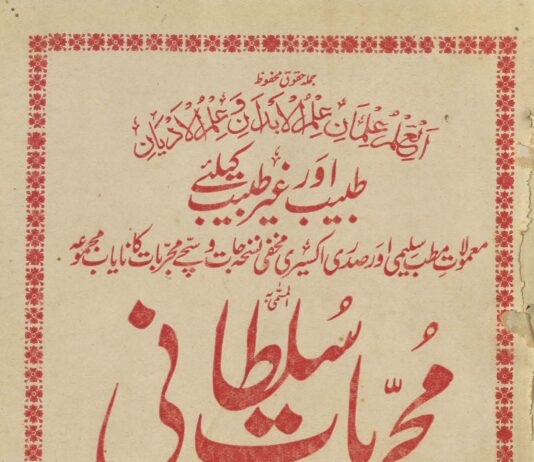 جملہ حقوق محفوظ
اَلْعِلْمُ عِلْمَانِ عِلْمُ الْاَبْدَانِ وَ عِلْمُ الْاَدْیَانِ
طبیب اور غیر طبیب کیلئے
معمولات مطب سلیمی اور صدری اکسیری مخفی نسخہ جات و سچے مجربات کا نایاب مجموعہ
المسمّٰی بہ
مجرّبات سُلطانی